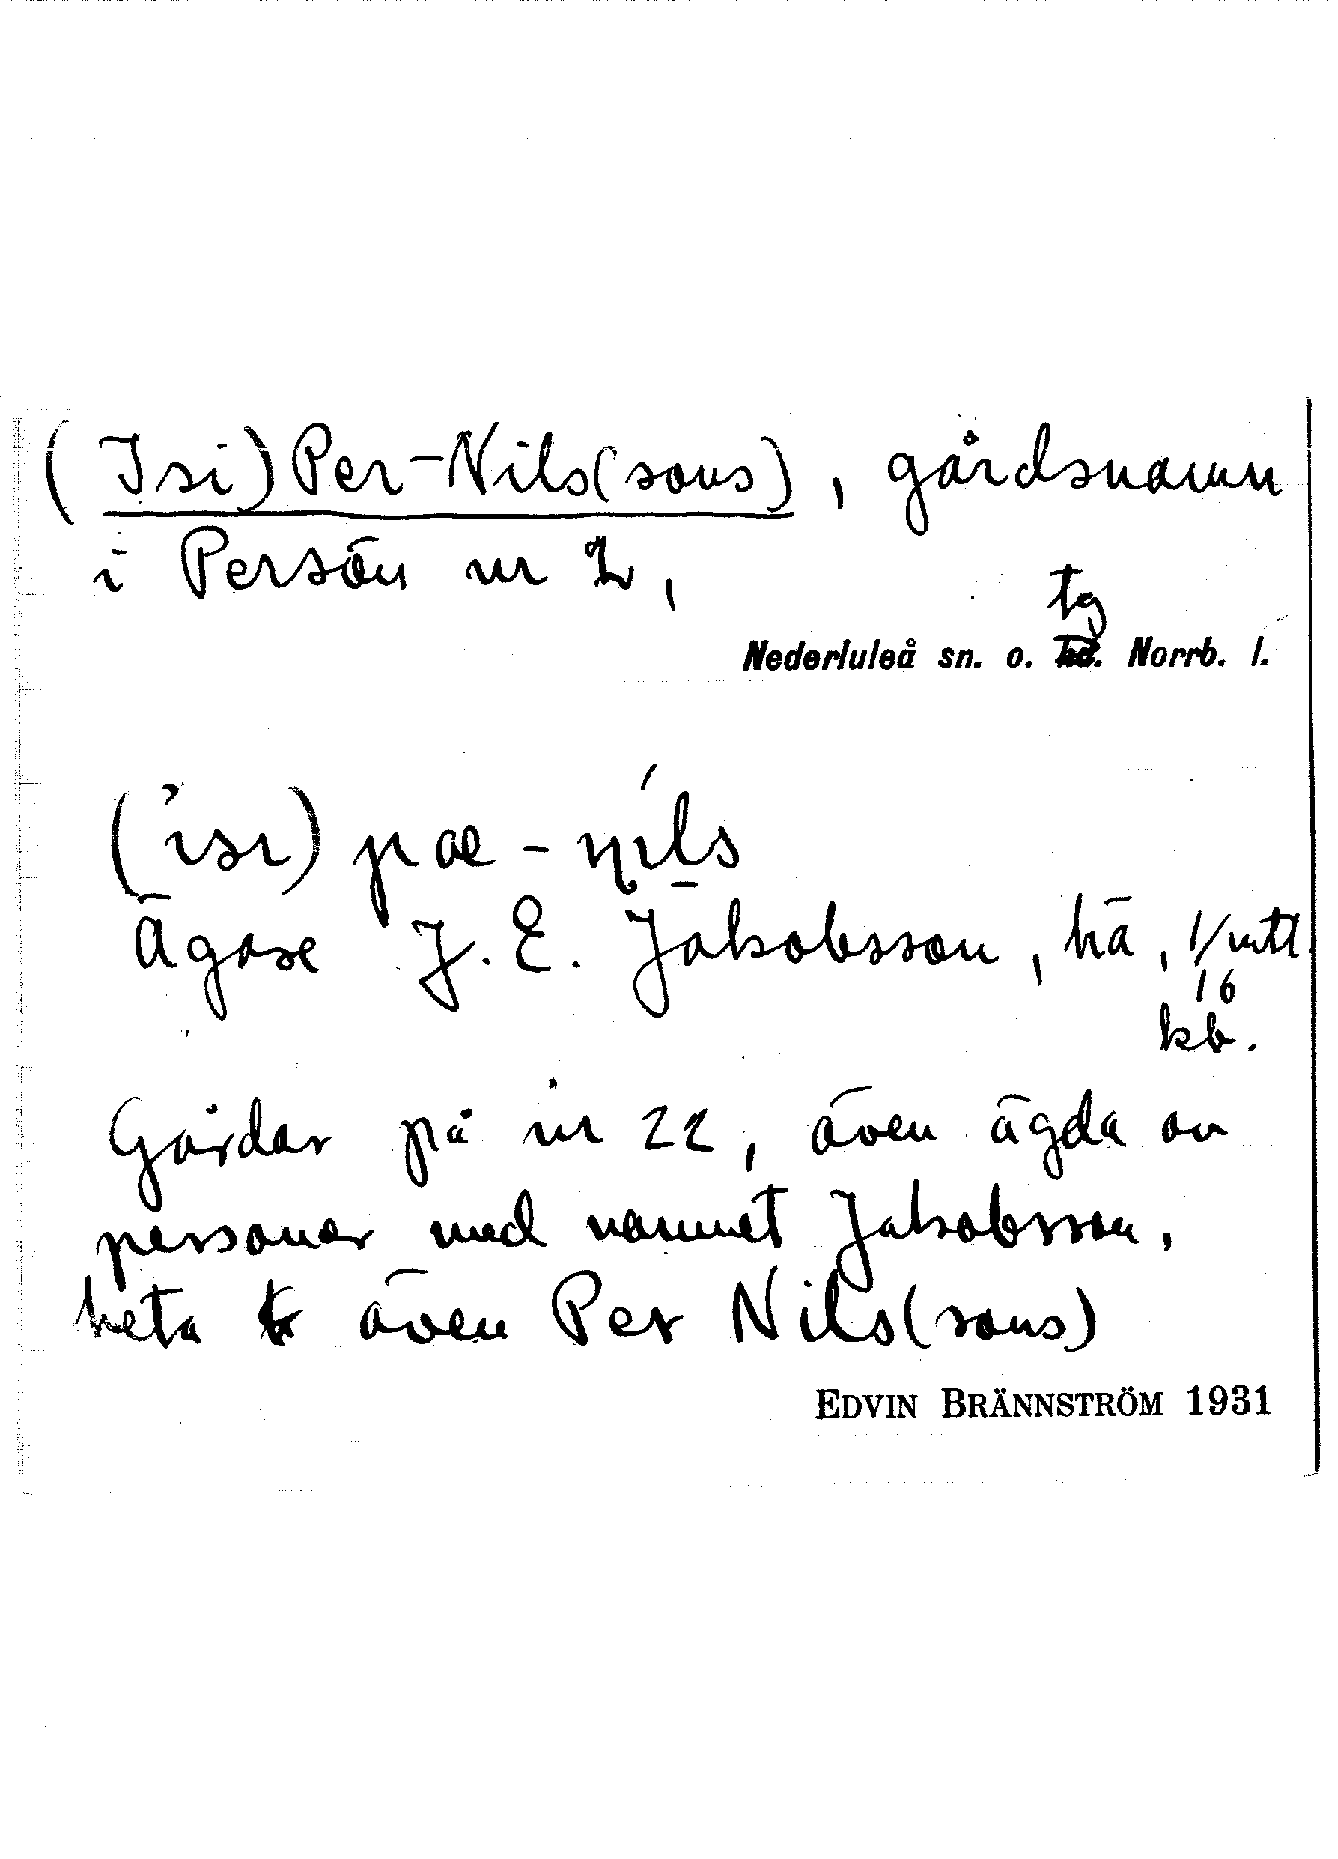 (Isi)Per-Nils(sons), gårdsnamn
i Persön nr 2,
tg
Nederluleå sn. o. hd. Norrb. l.
(ˈisɪ) pæ-nɪls
Ägare J. E. Jakobsson, hä, 1/16 mtl
kb.
Gårdar på nr 22, även ägda av
personer med namnet Jakobsson,
heta även Per Nils(sons)
EDVIN BRÄNNSTRÖM 1931